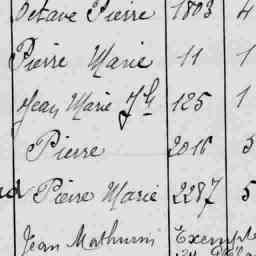 Octave Pierre 1803 4
Pierre Marie 11 1
Jean Marie 125 1
Pierre 2016
Pierre Marie 2287 5
Jean Mathurin Exempt